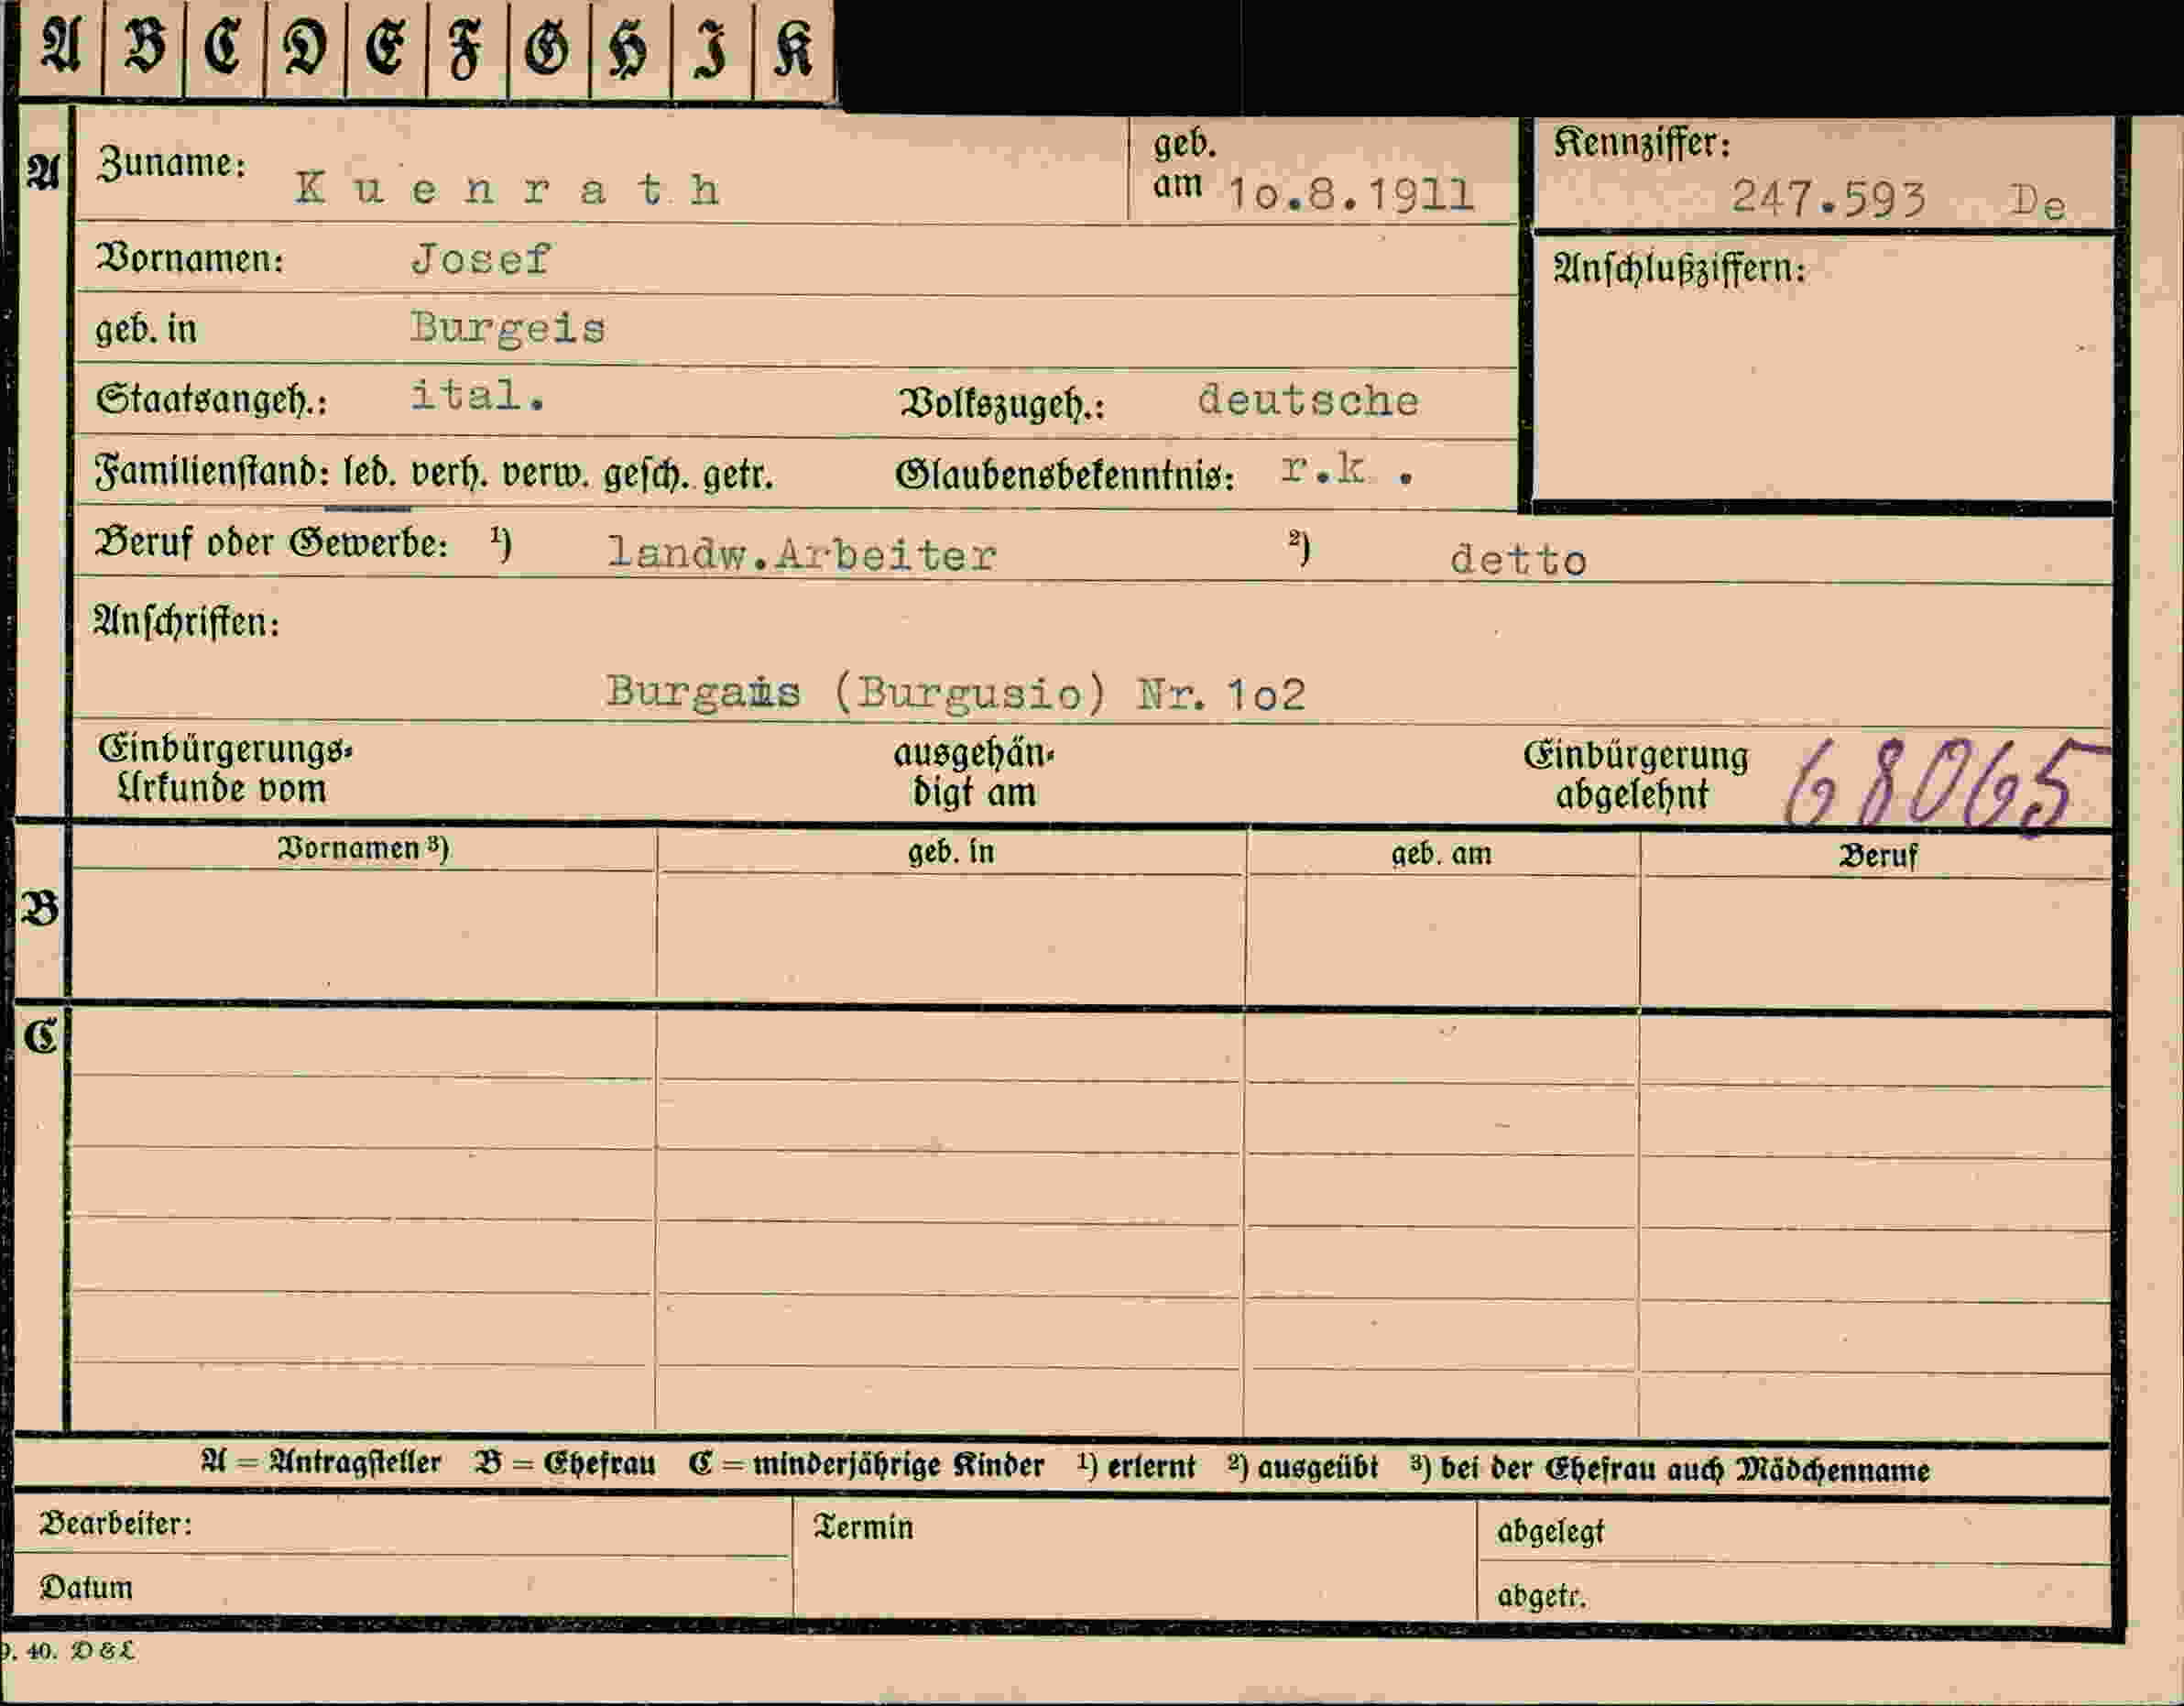 A B C D E F G H I K
A Zuname: Kuenrath geb. am 1o.8.1911 Kennziffer: 247.593 De
Vornamen: Josef Anschlußziffern:
geb. in Burgeis
Staatsangeh.: ital. Volkszugeh.: deutsche
Familienstand: led. verh. verw. gesch. getr. Glaubensbekenntnis: r.k .
Beruf oder Gewerbe: ¹) landw.Arbeiter ²) detto
Anschriften:
(Burgusio) Nr. 1o2
Einbürgerungs- ausgehän- Einbürgerung 68065
Urkunde vom digt am abgelehnt
Vornamen ³) geb. in geb. am Beruf
B
C
A = Antragsteller B = Ehefrau C = minderjährige Kinder ¹) erlernt ²) ausgeübt ³) bei der Ehefrau auch Mädchenname
Bearbeiter: Termin abgelegt
Datum abgetr.
40. D & L